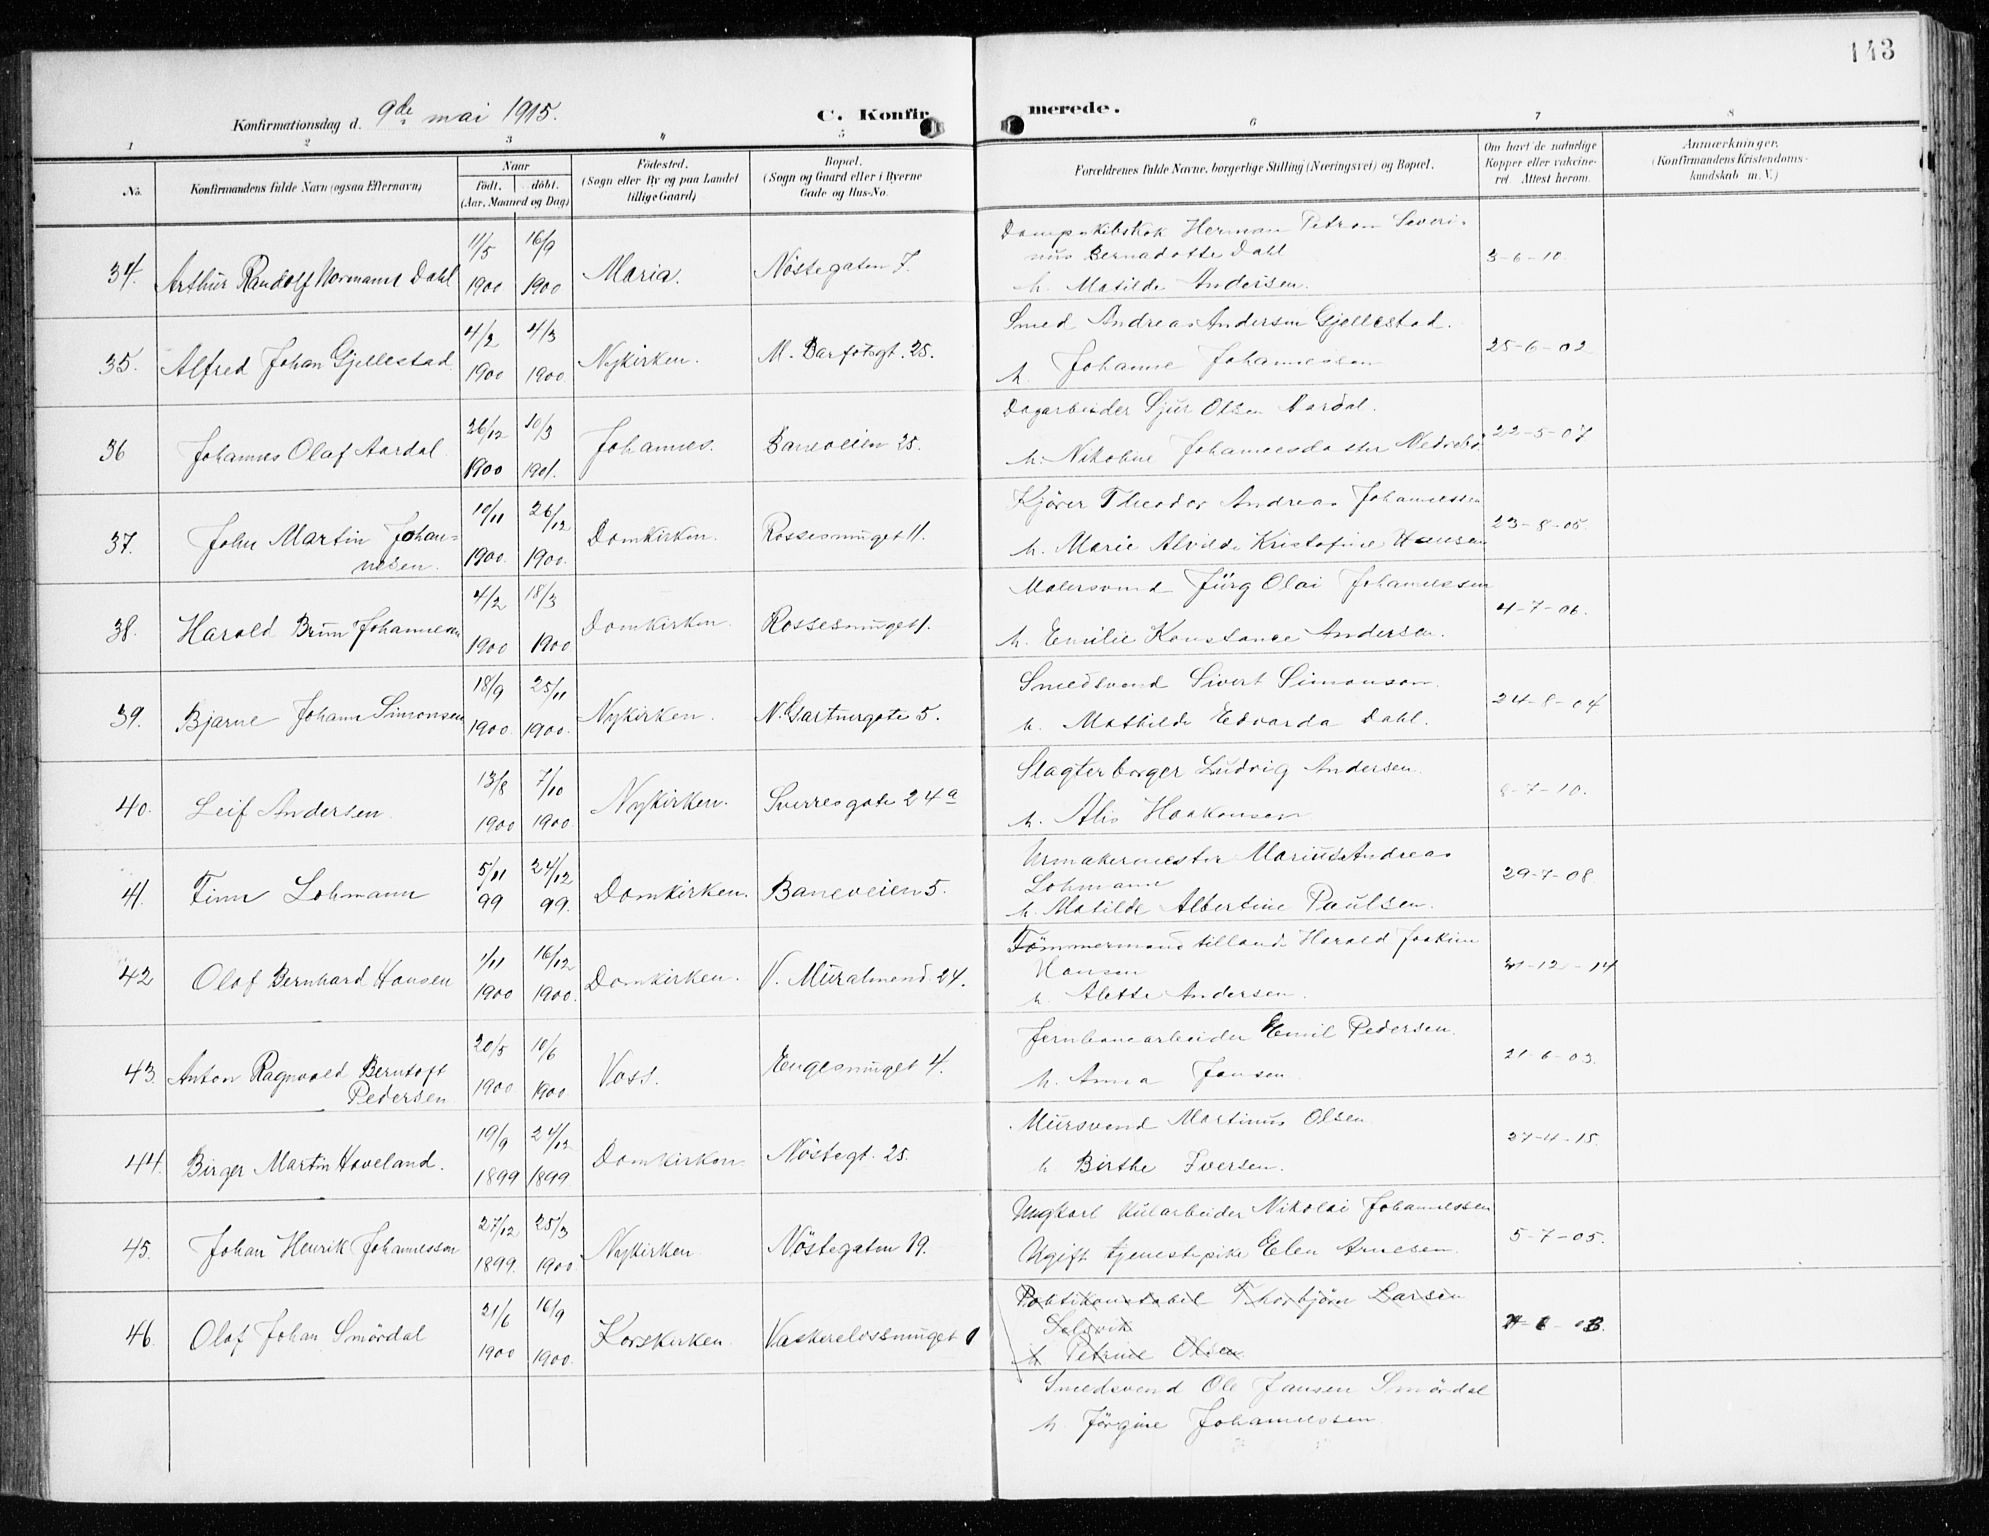 143
Konfirmationsdag d. 9de mai 1915.
C. Konfirmerede.
1 2 3 4 5 6 7 8
No.
Konfirmandens fulde Navn (ogsaa Efternavn)
Naar
födt. döbt.
(Aar, Maaned og Dag)
Födested.
(Sogn eller By og paa Landet
tillige Gaard)
Bopæl.
(Sogn og Gaard eller i Byerne
Gade og Hus-No.
Forældrenes fulde Navne, borgerlige Stilling (Næringsvei) og Bopæl.
Om havt de naturlige
Kopper eller vakcine-
ret. Attest herom.
Anmærkninger,
(Konfirmandens Kristendoms-
kundskab m. V.)
34. Arthur Randolf Normann Dahl 11/5 1900 16/9 1900 Maria. Nöstegaten 7.
Dampskibskok Herman Petrom Severi-
nus Bernadotte Dahl
h. Matilde Andersen.
3-6-10.
35. Alfred Johan Gjellestad 4/2 1900 4/3 1900 Nykirken. M. Barfotsgt. 25.
Smed Andreas Andersen Gjellestad.
h. Johanne Johannessen
25-6-02
36 Johannes Olaf Aardal 26/12 1900 10/3 1901. Johannes. Baneveien 25.
Dagarbeider Sjur Olsen Aardal.
h. Nikoline Johannesdatter
22-5-07
37. John Martin Johan=
nesen. 10/11 1900. 26/12 1900. Domkirken. Rossesmuget 11.
Kjörer Theodor Andreas Johannessen
h. Marie Alvilde Kristofine Hansen
23-8-05.
38. Harald Brun Johannesen 4/2 1900 18/3 1900 Domkirken. Rossesmuget 1.
Malersvend Jürg Olai Johannessen
h. Emilie Konstance Andersen.
4-7-06.
39. Bjarne Johann Simonsen 18/9 1900 25/11 1900. Nykirken. N. Gartnergate 5.
Smedsvend Sivert Simonsen.
h. Mathilde Edvarda Dahl.
24-8-04
40. Leif Andersen 13/8 1900 7/10 1900. Nykirken. Sverresgate 24a
Slagterborger Ludvig Andersen.
h. Alis Haakonsen
8-7-10.
41. Finn Lohmann 5/11 99 24/12 99. Domkirken. Baneveien 5.
Urmakermester Marius Andreas
Lohmann
h. Matilde Albertine Paulsen.
29-7-08.
42 Olaf Bernhard Hansen 1/11 1900 16/12 1900. Domkirken. V. Muralmend. 24.
Tömmermand tillands Harald Joakim
Hansen
h. Alette Andersen.
31-12-14
43. Anton Ragnvald Berntoft
Pedersen 20/5 1900 10/6 1900 Voss. Engesmuget 4.
Jernbanearbeider Emil Pedersen.
h. Anna Jansen.
21-6-03.
44. Birger Martin Hoveland. 19/9 1899 24/12 1899 Domkirken Nöstegt. 25.
Mursvend Martinus Olsen
h Birthe Iversen.
27-4-15.
45. Johan Henrik Johannesson 27/12 1899. 25/3 1900 Nykirken. Nöstegaten 19.
Ungkarl Kularbeider Nikolai Johannessen
Ugift tjenestepike Elen Arnesen.
5-7-05.
46. Olaf Johan Smördal 21/6 1900 16/9 1900. Korskirken. Vaskerelvssmuget 1
Politikonstabel Thorbjörn Larsen
Selsvik
h Petrine Olsen.
Smedsvend Ole Jansen Smördal
h. Jörgine Johannessen.